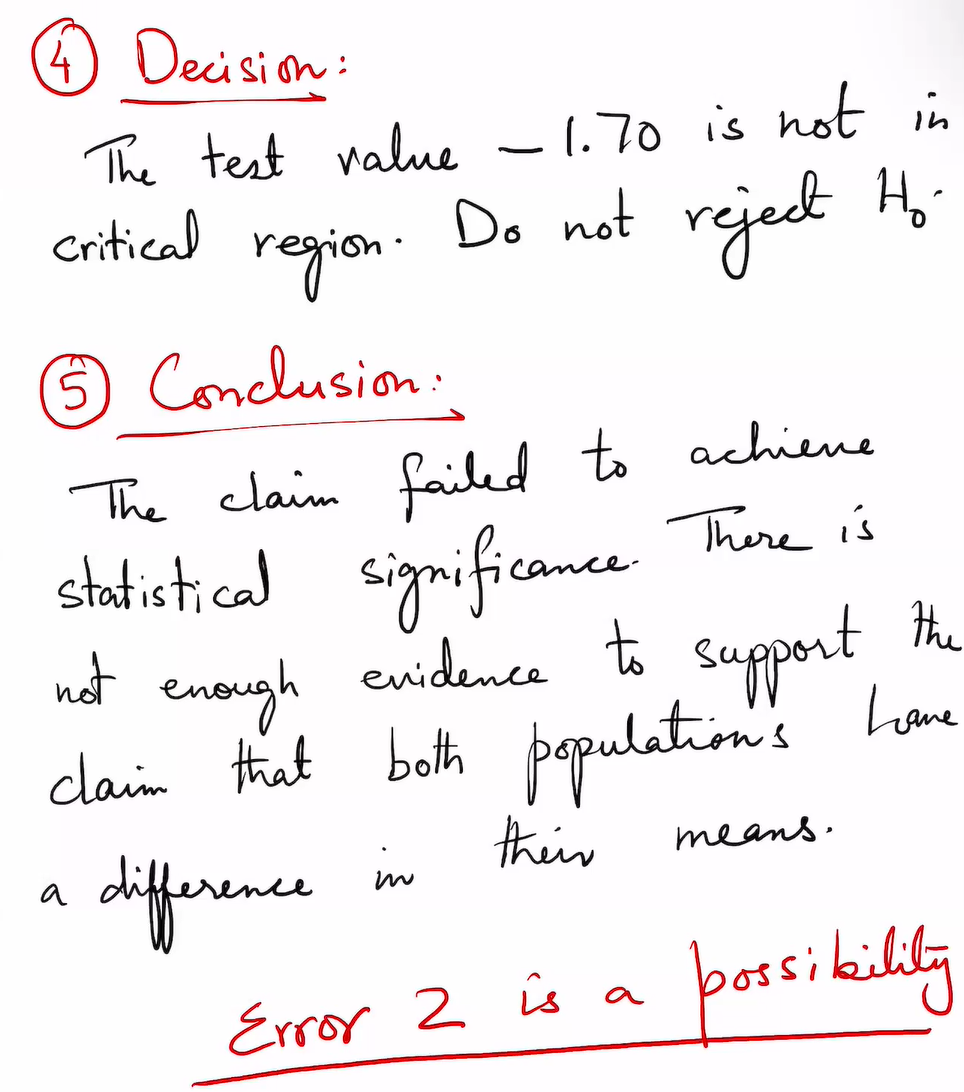 ④ Decision:
The test value -1.70 is not in
critical region. Do not reject H₀.
⑤ Conclusion:
The claim failed to achieve
statistical significance. There is
not enough evidence to support the
claim that both populations have
a difference in their means.
Error 2 is a possibility